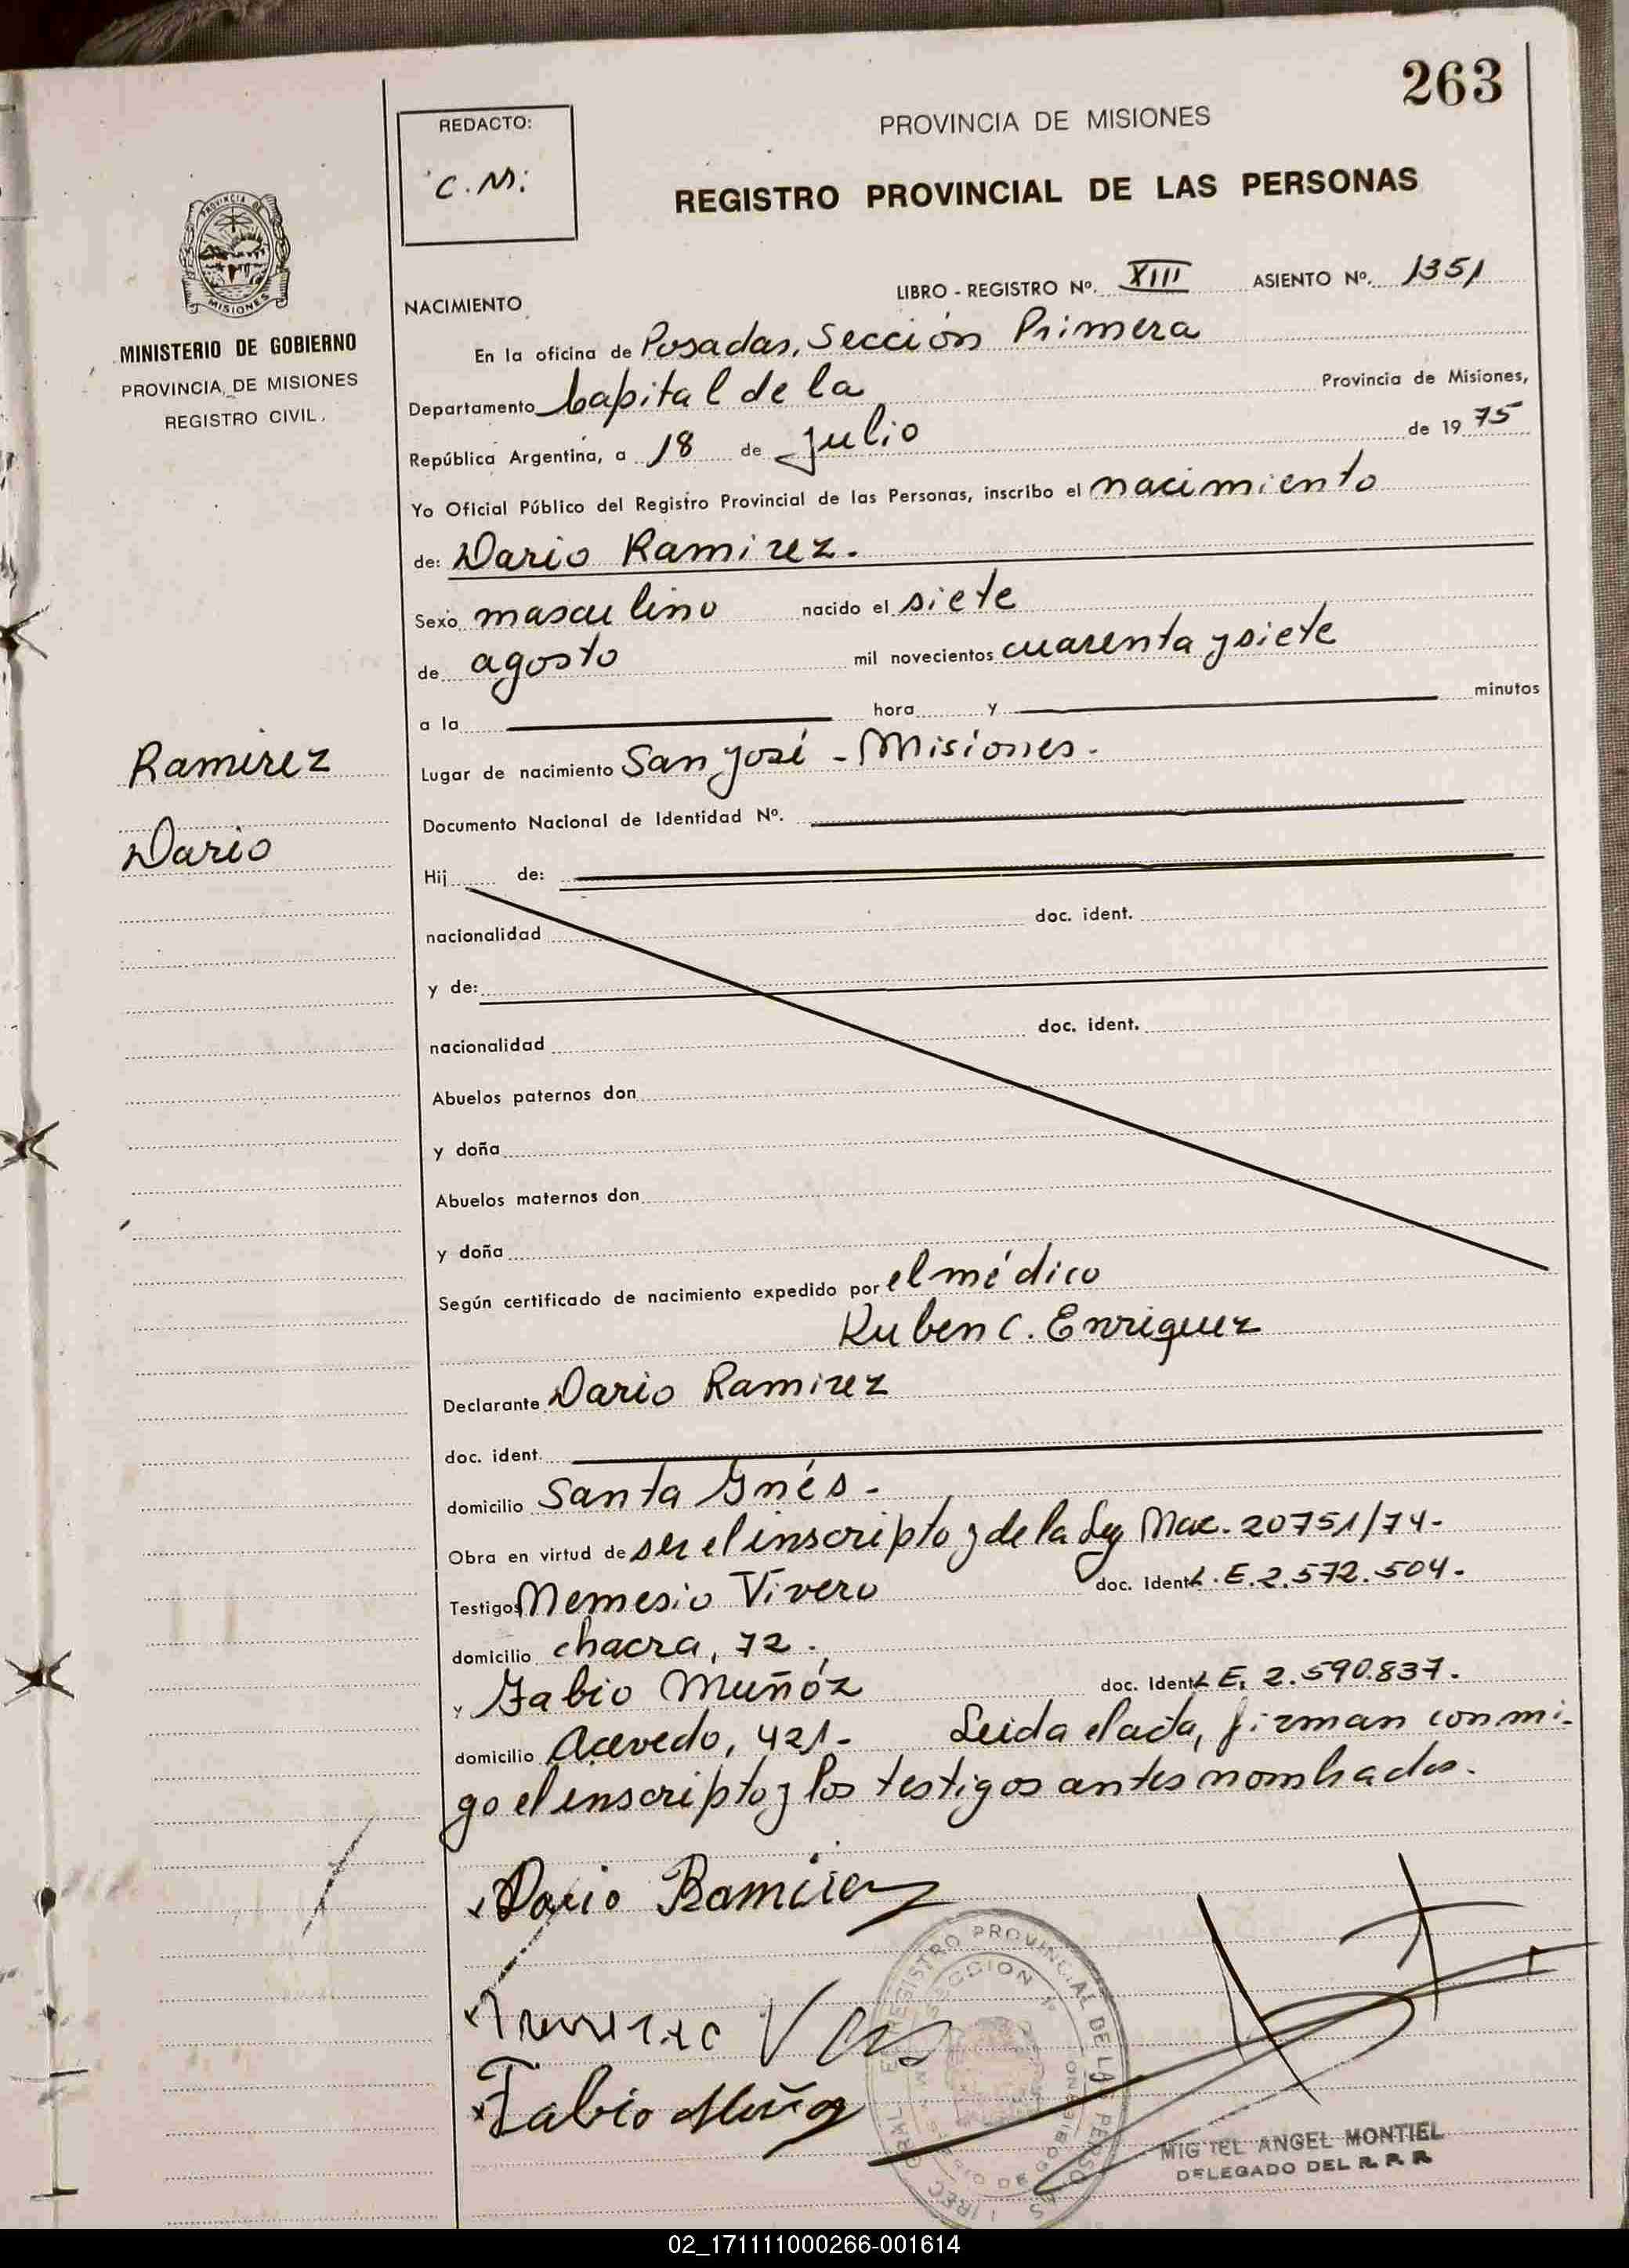 263
REDACTO:
C.M.
PROVINCIA DE MISIONES
REGISTRO PROVINCIAL DE LAS PERSONAS
PROVINCIA DE
MISIONES
MINISTERIO DE GOBIERNO
PROVINCIA DE MISIONES
REGISTRO CIVIL
LIBRO - REGISTRO Nº. XIII ASIENTO Nº. 1351
NACIMIENTO
En la oficina de Posadas, Sección Primera
Departamento Capital de la Provincia de Misiones,
República Argentina, a 18 de Julio de 19 75
Yo Oficial Público del Registro Provincial de las Personas, inscribo el nacimiento
de: Dario Ramirez.
Sexo masculino nacido el siete
de agosto mil novecientos cuarenta y siete
a la hora y minutos
Ramirez
Dario
Lugar de nacimiento San José - Misiones.
Documento Nacional de Identidad Nº.
Hij de:
nacionalidad doc. ident.
y de:
nacionalidad doc. ident.
Abuelos paternos don
y doña
Abuelos maternos don
y doña
Según certificado de nacimiento expedido por el médico
Ruben C. Enriquez
Declarante Dario Ramirez
doc. ident.
domicilio Santa Inés -
Obra en virtud de ser el inscripto y de la Ley Nac. 20751/74-
Testigos Nemesio Vivero doc. Ident L.E. 2.572.504.
domicilio chacra, 72.
y Fabio Muñóz doc. Ident L E. 2.590.837.
domicilio Acevedo, 421- Leida el acta, firman conmi-
go el inscripto y los testigos antes nombrados.
Dario Ramirez
Fabio Muñoz
REGISTRO PROVINCIAL DE LAS PERSONAS
SECCION 1ª
MIGUEL ANGEL MONTIEL
DELEGADO DEL R. P. P.
02_171111000266-001614